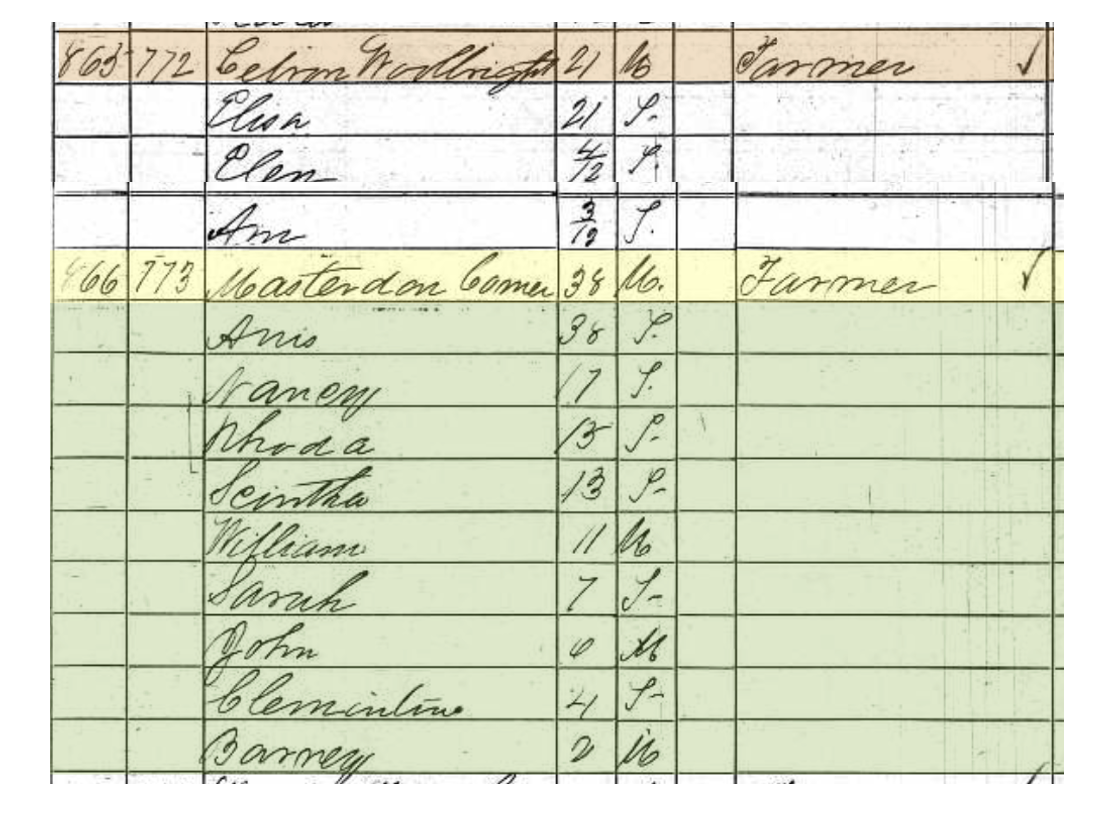 865 772 Celvon Woolbright 21 M Farmer ✓
Elisa 21 F
Elen 4/12 F
Am 3/12 F.
866 773 Masterdon Comer 38 M. Farmer ✓
Anis 38 F.
Nancy 17 F.
Rhoda 15 F
Scintha 13 F
William 11 M
Sarah 7 F
John 6 M
Clemintine 4 F
Barney 2 M